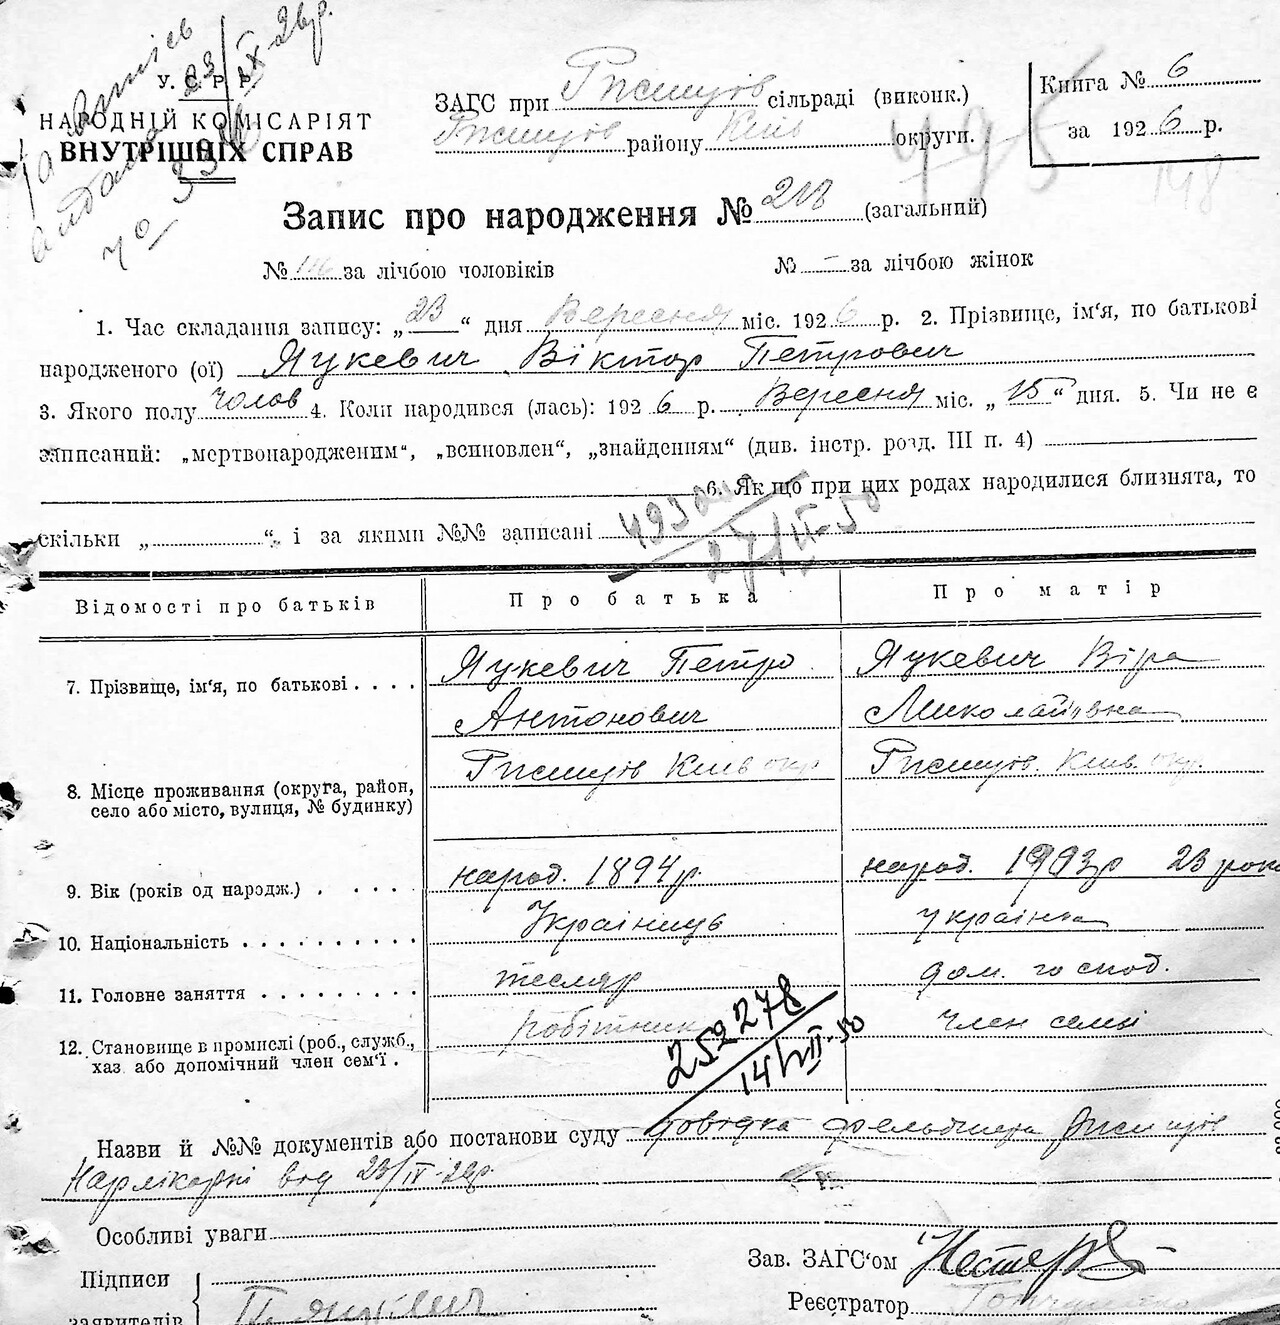 У. С. Р. Р.
НАРОДНІЙ КОМІСАРІЯТ
ВНУТРІШНІХ СПРАВ
ЗАГС при Ржищів сільраді (виконк.)
Ржищів району Київ округи.
Книга № 6
за 1926 р.
Запис про народження № (загальний)
№ за лічбою чоловіків № – за лічбою жінок
1. Час складання запису: „23“ дня Вересня міс. 1926 р. 2. Прізвище, ім'я, по батькові
народженого (ої) Янукевич Віктор Петрович
3. Якого полу чолов 4. Коли народився (лась): 1926 р. Вересня міс. „15“ дня. 5. Чи не є
записаний: „мертвонародженим“, „всиновлен“, „знайденням“ (див. інстр. розд. III п. 4)
6. Як що при цих родах народилися близнята, то
скільки „ “ і за якими №№ записані
27/II-50
Відомості про батьків Про батька Про матір
7. Прізвище, ім'я, по батькові Петро Антонович Віра Миколаївна
8. Місце проживання (округа, район, село або місто, вулиця, № будинку) Ржищів Київ окр Ржищів Київ. окр
9. Вік (років од народж.) народ. 1894 р. народ. 1903 р 23 роки
10. Національність Українець українка
11. Головне заняття тесляр дом. господ.
12. Становище в промислі (роб., служб., хаз або допомічний член сем'ї. робітник член семьї
252278
14/VII-50
Назви й №№ документів або постанови суду довідка фельдшера Ржищів
од 23/IX-26р.
Особливі уваги
Зав. ЗАГС'ом
Підписи
заявителів
Реєстратор